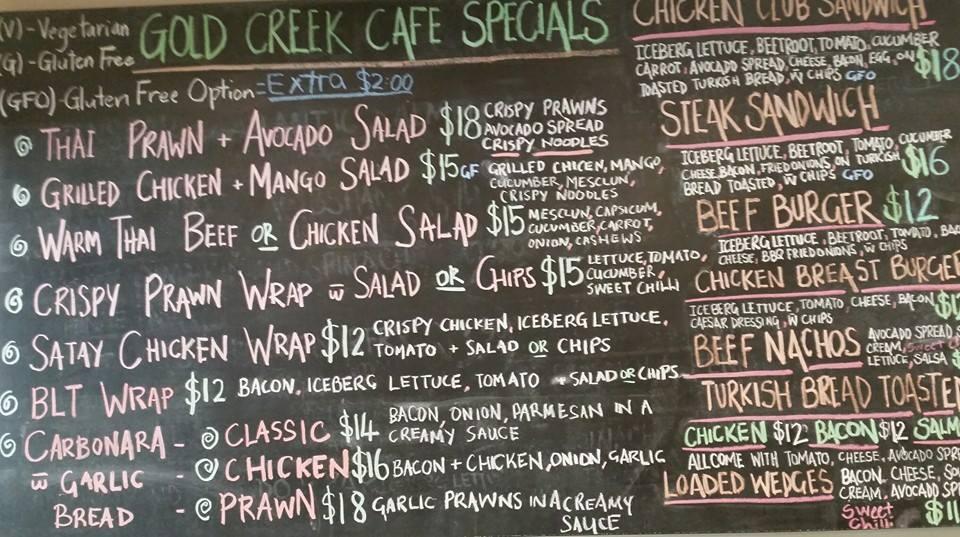 (V) - Vegetarian
(G) - Gluten Free
(GFO) - Gluten Free Option = Extra $2:00
GOLD CREEK CAFE SPECIALS
THAI PRAWN + AVOCADO SALAD $18 CRISPY PRAWNS
AVOCADO SPREAD
CRISPY NOODLES
GRILLED CHICKEN + MANGO SALAD $15 GF GRILLED CHICEN, MANGO,
CUCUMBER, MESCLUN,
CRISPY NOODLES
WARM THAI BEEF OR CHICKEN SALAD $15 MESCLUN, CAPSICUM,
CUCUMBER, CARROT,
ONION, CASHEWS
CRISPY PRAWN WRAP w SALAD OR CHIPS $15 LETTUCE, TOMATO,
CUCUMBER,
SWEET CHILLI
SATAY CHICKEN WRAP $12 CRISPY CHICKEN, ICEBERG LETTUCE,
TOMATO + SALAD OR CHIPS
BLT WRAP $12 BACON, ICEBERG LETTUCE, TOMATO + SALAD OR CHIPS
CARBONARA - CLASSIC $14 BACON, ONION, PARMESAN IN A
CREAMY SAUCE
w GARLIC - CHICKEN $16 BACON + CHICKEN, ONION, GARLIC
BREAD - PRAWN $18 GARLIC PRAWNS IN A CREAMY
SAUCE
CHICKEN CLUB SANDWICH
ICEBERG LETTUCE, BEETROOT, TOMATO, CUCUMBER
CARROT, AVOCADO SPREAD, CHEESE, BACON, EGG, ON $18
TOASTED TURKISH BREAD, w CHIPS GFO
STEAK SANDWICH
ICEBERG LETTUCE, BEETROOT, TOMATO, CUCUMBER
CHEESE, BACON, FRIED ONIONS, ON TURKISH $16
BREAD TOASTED, w CHIPS GFO
BEEF BURGER $12
ICEBERG LETTUCE, BEETROOT, TOMATO,
CHEESE, BBQ FRIED ONIONS, w CHIPS
CHICKEN BREAST BURGER
ICEBERG LETTUCE, TOMATO, CHEESE, BACON
CAESAR DRESSING, w CHIPS
BEEF NACHOS AVOCADO SPREAD,
CREAM, Sweet
LETTUCE, SALSA
TURKISH BREAD TOASTED
CHICKEN $12 BACON $12
ALL COME WITH TOMATO, CHEESE, AVOCADO
LOADED WEDGES BACON, CHEESE,
CREAM, AVOCADO
Sweet
Chilli